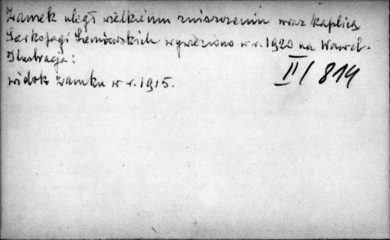 Zamek uległ wielkiemu zniszczeniu wraz kaplicą
Sarkofagi Leniowskich wywieziono w r. 1920 na Wawel.
Ilustracja:
widok zamku w r. 1915.
II/814